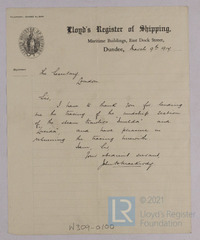 Lloyd's Register of Shipping,
Maritime Buildings, East Dock Street,
Dundee, March 9th 1914
The Secretary
London
Sir,
I have to thank you for sending
me the tracing of the midship section
of the
and have pleasure in
returning the tracing herewith
I am, Sir,
Your obedient servant
N309-0100
© 2021
Lloyd's Register
Foundation